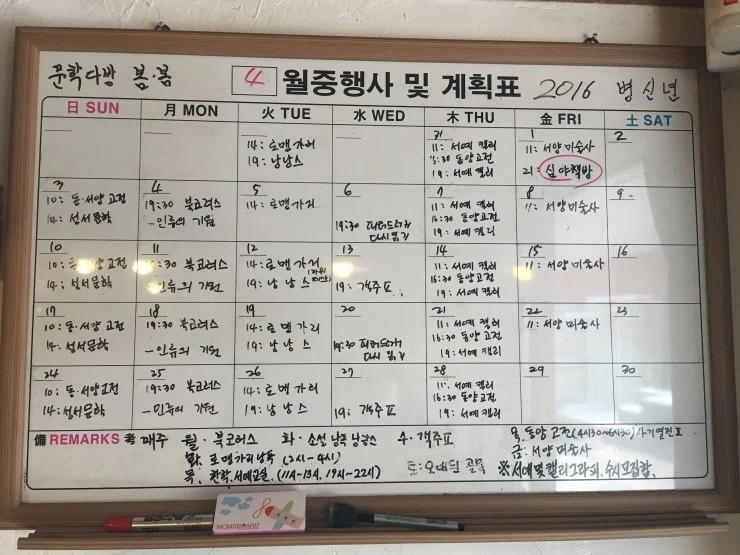 문학다방 봄·봄
4 월중행사 및 계획표 2016 병신년
日 SUN 月 MON 火 TUE 水 WED 木 THU 金 FRI 土 SAT
31 1 2
14: 로맹가리 11: 서예 캘리 11: 서양미술사
19: 낭낭스 15:30 동양고전
19: 서예 캘리 21: 심야책방
3 4 5 6 7 8 9
10: 동·서양고전 19:30 북코러스 14: 로맹가리 11: 서예 캘리 11: 서양미술사
14: 성서문학 -인류의 기원 19:30 피터드러커 16:30 동양고전
다시읽기 19: 서예 캘리
10 11 12 13 14 15 16
10: 동·서양고전 :30 북코러스 14: 로맹가리 11: 서예 캘리 11: 서양미술사
14: 성서문학 인류의 기원 19: 낭낭스 19: 객주 16:30 동양고전
19: 서예캘리
17 18 19 20 21 22 23
10: 동·서양 고전 19:30 북코러스 14: 로맹가리 11: 서예 캘리 11: 서양미술사
14: 성서문학 -인류의 기원 19: 낭낭스 19:30 피터드러커 16:30 동양고전
다시 읽기 19: 서예 캘리
24 25 26 27 28 29 30
10: 동·서양고전 19:30 북코러스 14: 로맹가리 11: 서예 캘리
14: 성서문학 -인류의 기원 19: 낭낭스 19: 객주 16:30 동양고전
19: 서예 캘리
備 REMARKS 考 매주 월·북코러스 화·소설 낭독 낭낭스 수·객주 목. 동양고전(4시30~6시30) 사기열전
화. 로맹가리낭독 (2시~4시) 금: 서양미술사
목. 한학·서예교실. (11시~13시, 19시~22시) 토: 오래된 골목 ※서예및캘리그라피 수시모집함.
MOMSERABIZ